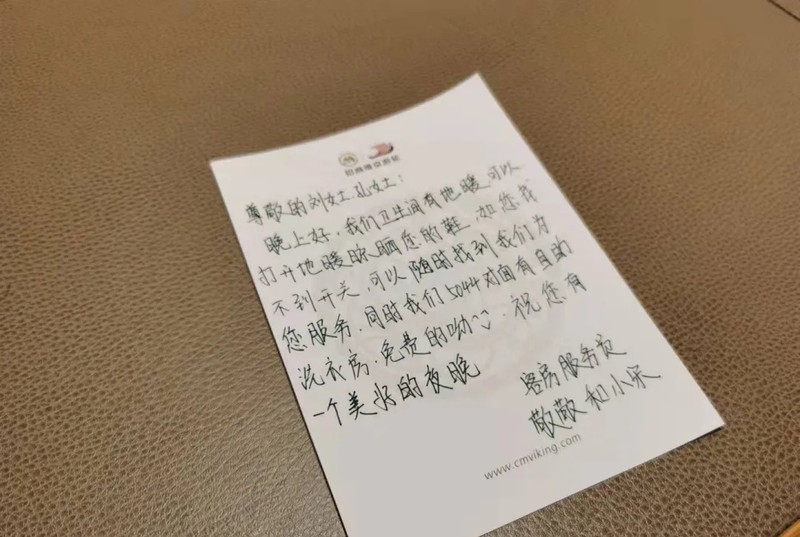 招商维京游轮
尊敬的刘女士、孔女士：
晚上好，我们卫生间有地暖，可以
打开地暖晾晒您的鞋，如您找
不到开关，可以随时找到我们为
您服务，同时我们5044对面有自助
洗衣房，免费的呦～，祝您有
一个美好的夜晚
客房服务员
敬敬和小宋
www.cmviking.com